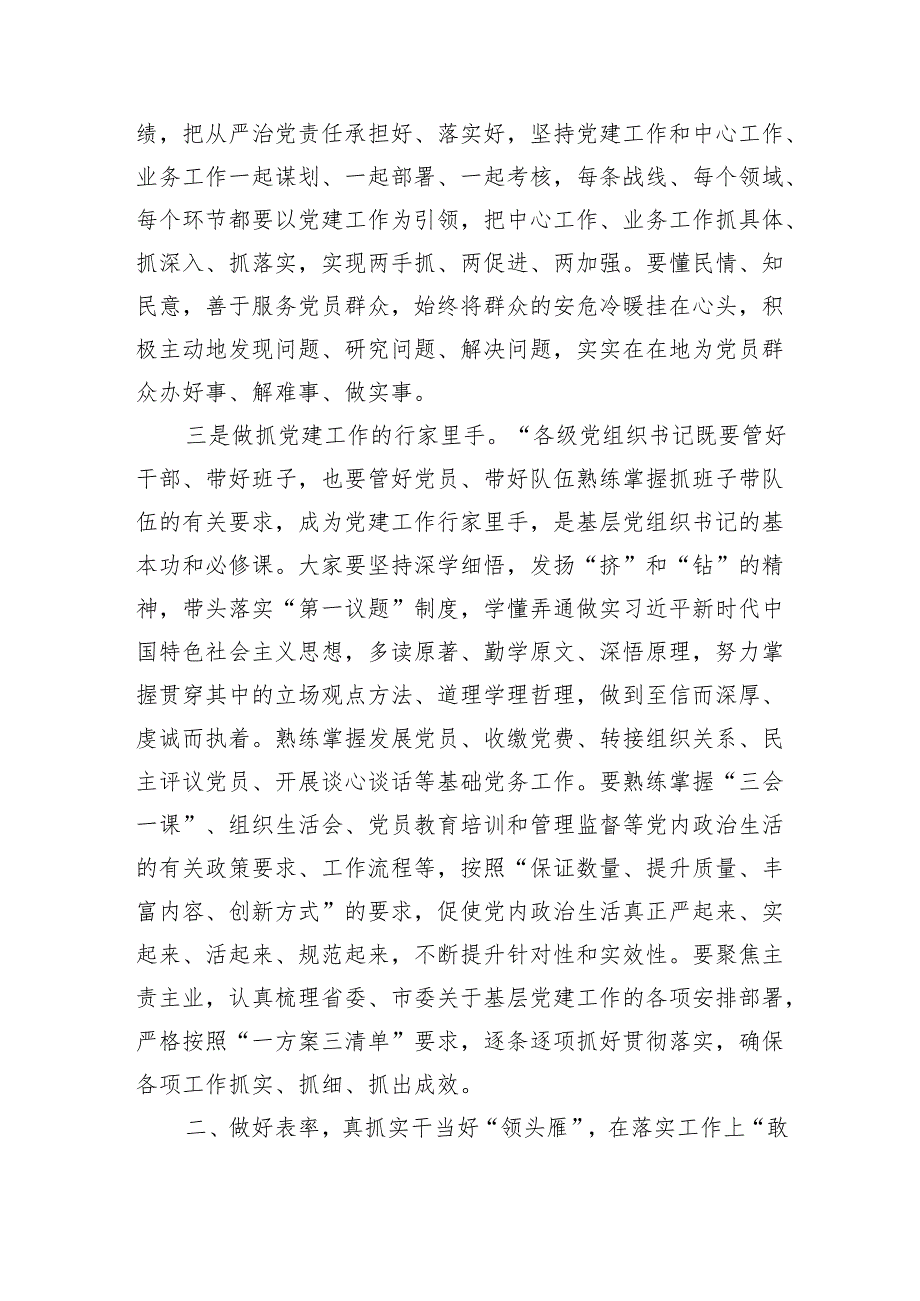 绩，把从严治党责任承担好、落实好，坚持党建工作和中心工作、
业务工作一起谋划、一起部署、一起考核，每条战线、每个领域、
每个环节都要以党建工作为引领，把中心工作、业务工作抓具体、
抓深入、抓落实，实现两手抓、两促进、两加强。要懂民情、知
民意，善于服务党员群众，始终将群众的安危冷暖挂在心头，积
极主动地发现问题、研究问题、解决问题，实实在在地为党员群
众办好事、解难事、做实事。
三是做抓党建工作的行家里手。“各级党组织书记既要管好
干部、带好班子，也要管好党员、带好队伍熟练掌握抓班子带队
伍的有关要求，成为党建工作行家里手，是基层党组织书记的基
本功和必修课。大家要坚持深学细悟，发扬“挤”和“钻”的精
神，带头落实“第一议题”制度，学懂弄通做实习近平新时代中
国特色社会主义思想，多读原著、勤学原文、深悟原理，努力掌
握贯穿其中的立场观点方法、道理学理哲理，做到至信而深厚、
虔诚而执着。熟练掌握发展党员、收缴党费、转接组织关系、民
主评议党员、开展谈心谈话等基础党务工作。要熟练掌握“三会
一课”、组织生活会、党员教育培训和管理监督等党内政治生活
的有关政策要求、工作流程等，按照“保证数量、提升质量、丰
富内容、创新方式”的要求，促使党内政治生活真正严起来、实
起来、活起来、规范起来，不断提升针对性和实效性。要聚焦主
责主业，认真梳理省委、市委关于基层党建工作的各项安排部署，
严格按照“一方案三清单”要求，逐条逐项抓好贯彻落实，确保
各项工作抓实、抓细、抓出成效。
二、做好表率，真抓实干当好“领头雁”，在落实工作上“敢